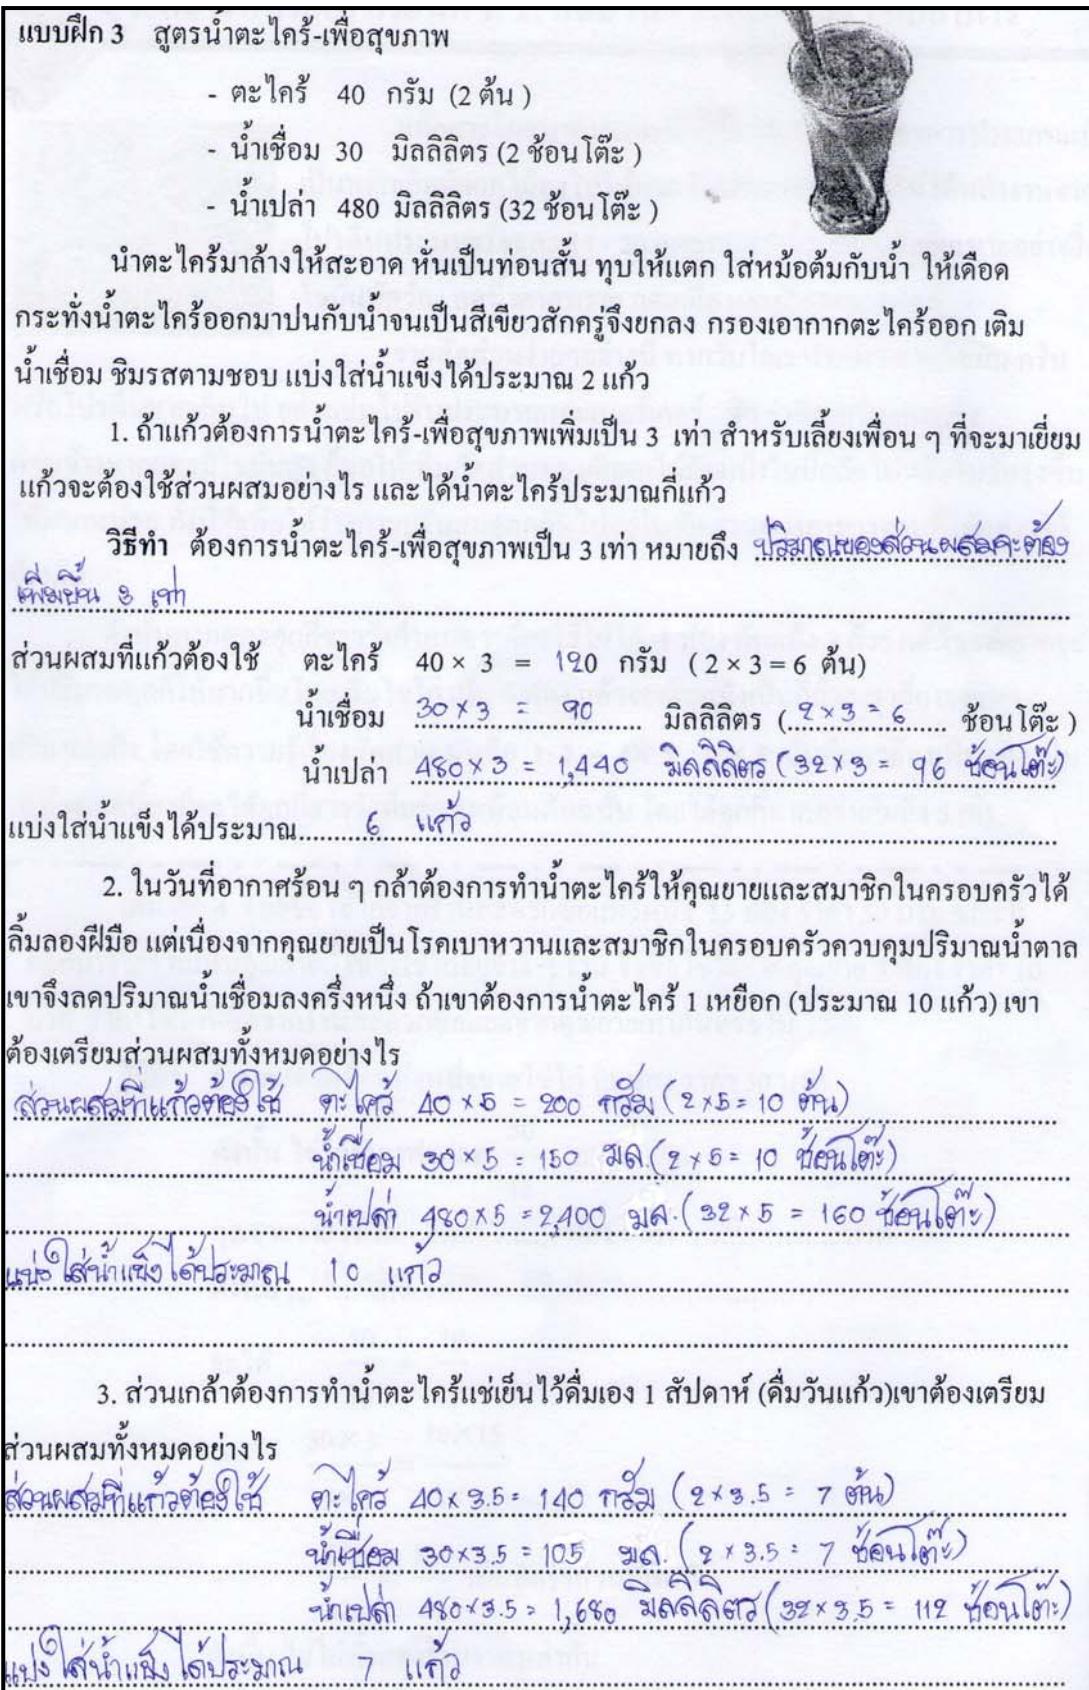 แบบฝึก 3 สูตรน้ำตะไคร้-เพื่อสุขภาพ
- ตะไคร้ 40 กรัม (2 ต้น )
- น้ำเชื่อม 30 มิลลิลิตร (2 ช้อนโต๊ะ )
- น้ำเปล่า 480 มิลลิลิตร (32 ช้อนโต๊ะ )
นำตะไคร้มาล้างให้สะอาด หั่นเป็นท่อนสั้น ทุบให้แตก ใส่หม้อต้มกับน้ำ ให้เดือด
กระทั่งน้ำตะไคร้ออกมาปนกับน้ำจนเป็นสีเขียวสักครู่จึงยกลง กรองเอากากตะไคร้ออก เติม
น้ำเชื่อม ชิมรสตามชอบ แบ่งใส่น้ำแข็งได้ประมาณ 2 แก้ว
1. ถ้าแก้วต้องการน้ำตะไคร้-เพื่อสุขภาพเพิ่มเป็น 3 เท่า สำหรับเลี้ยงเพื่อน ๆ ที่จะมาเยี่ยม
แก้วจะต้องใช้ส่วนผสมอย่างไร และได้น้ำตะไคร้ประมาณกี่แก้ว
วิธีทำ ต้องการน้ำตะไคร้-เพื่อสุขภาพเป็น 3 เท่า หมายถึง ปริมาณของส่วนผสมจะต้อง
เพิ่มขึ้น 3 เท่า
ส่วนผสมที่แก้วต้องใช้ ตะไคร้ 40 × 3 = 120 กรัม ( 2 × 3 = 6 ต้น)
น้ำเชื่อม 30 × 3 = 90 มิลลิลิตร ( 2 × 3 = 6 ช้อนโต๊ะ )
น้ำเปล่า 480 × 3 = 1,440 มิลลิลิตร (32 × 3 = 96 ช้อนโต๊ะ)
แบ่งใส่น้ำแข็งได้ประมาณ 6 แก้ว
2. ในวันที่อากาศร้อน ๆ กล้าต้องการทำน้ำตะไคร้ให้คุณยายและสมาชิกในครอบครัวได้
ลิ้มลองฝีมือ แต่เนื่องจากคุณยายเป็นโรคเบาหวานและสมาชิกในครอบครัวควบคุมปริมาณน้ำตาล
เขาจึงลดปริมาณน้ำเชื่อมลงครึ่งหนึ่ง ถ้าเขาต้องการน้ำตะไคร้ 1 เหยือก (ประมาณ 10 แก้ว) เขา
ต้องเตรียมส่วนผสมทั้งหมดอย่างไร
ส่วนผสมที่แก้วต้องใช้ ตะไคร้ 40 × 5 = 200 กรัม (2 × 5 = 10 ต้น)
น้ำเชื่อม 30 × 5 = 150 มล. (2 × 5 = 10 ช้อนโต๊ะ)
น้ำเปล่า 480 × 5 = 2,400 มล. (32 × 5 = 160 ช้อนโต๊ะ)
แบ่งใส่น้ำแข็งได้ประมาณ 10 แก้ว
3. ส่วนเกล้าต้องการทำน้ำตะไคร้แช่เย็นไว้ดื่มเอง 1 สัปดาห์ (ดื่มวันแก้ว)เขาต้องเตรียม
ส่วนผสมทั้งหมดอย่างไร
ส่วนผสมที่แก้วต้องใช้ ตะไคร้ 40 × 3.5 = 140 กรัม (2 × 3.5 = 7 ต้น)
น้ำเชื่อม 30 × 3.5 = 105 มล. (2 × 3.5 = 7 ช้อนโต๊ะ)
น้ำเปล่า 480 × 3.5 = 1,680 มิลลิลิตร (32 × 3.5 = 112 ช้อนโต๊ะ)
แบ่งใส่น้ำแข็งได้ประมาณ 7 แก้ว